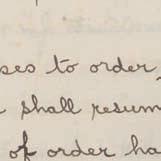 ses to order,
shall resum
of order ha